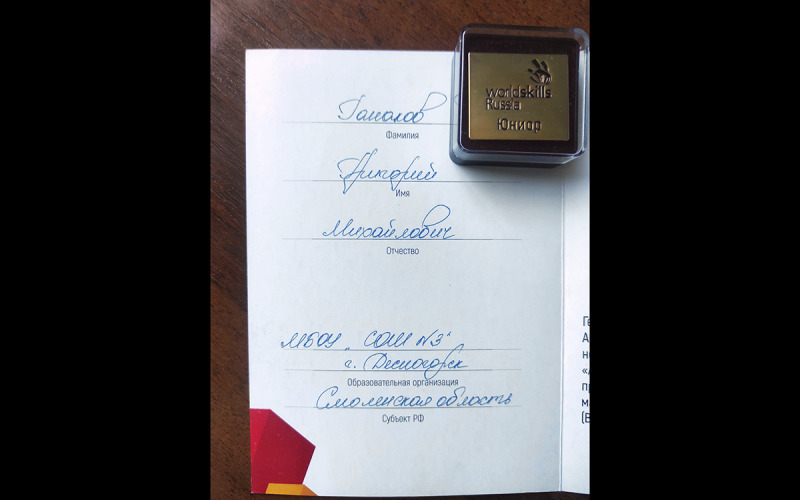 worldskills
Russia
Юниор
Фамилия
Имя
Михайлович
Отчество
МБОУ „СОШ №3"
г. Десногорск
Образовательная организация
Смоленская область
Субъект РФ